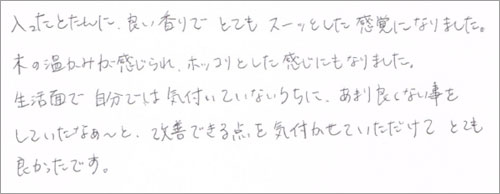 入ったとたんに、良い香りで とても スーッとした 感覚になりました。
木の温かみが感じられ、ホッコリとした感じにもなりました。
生活面で 自分では気付いていないうちに、あまり良くない事を
していたなぁ～と、改善できる点を気付かせていただけて とても
良かったです。